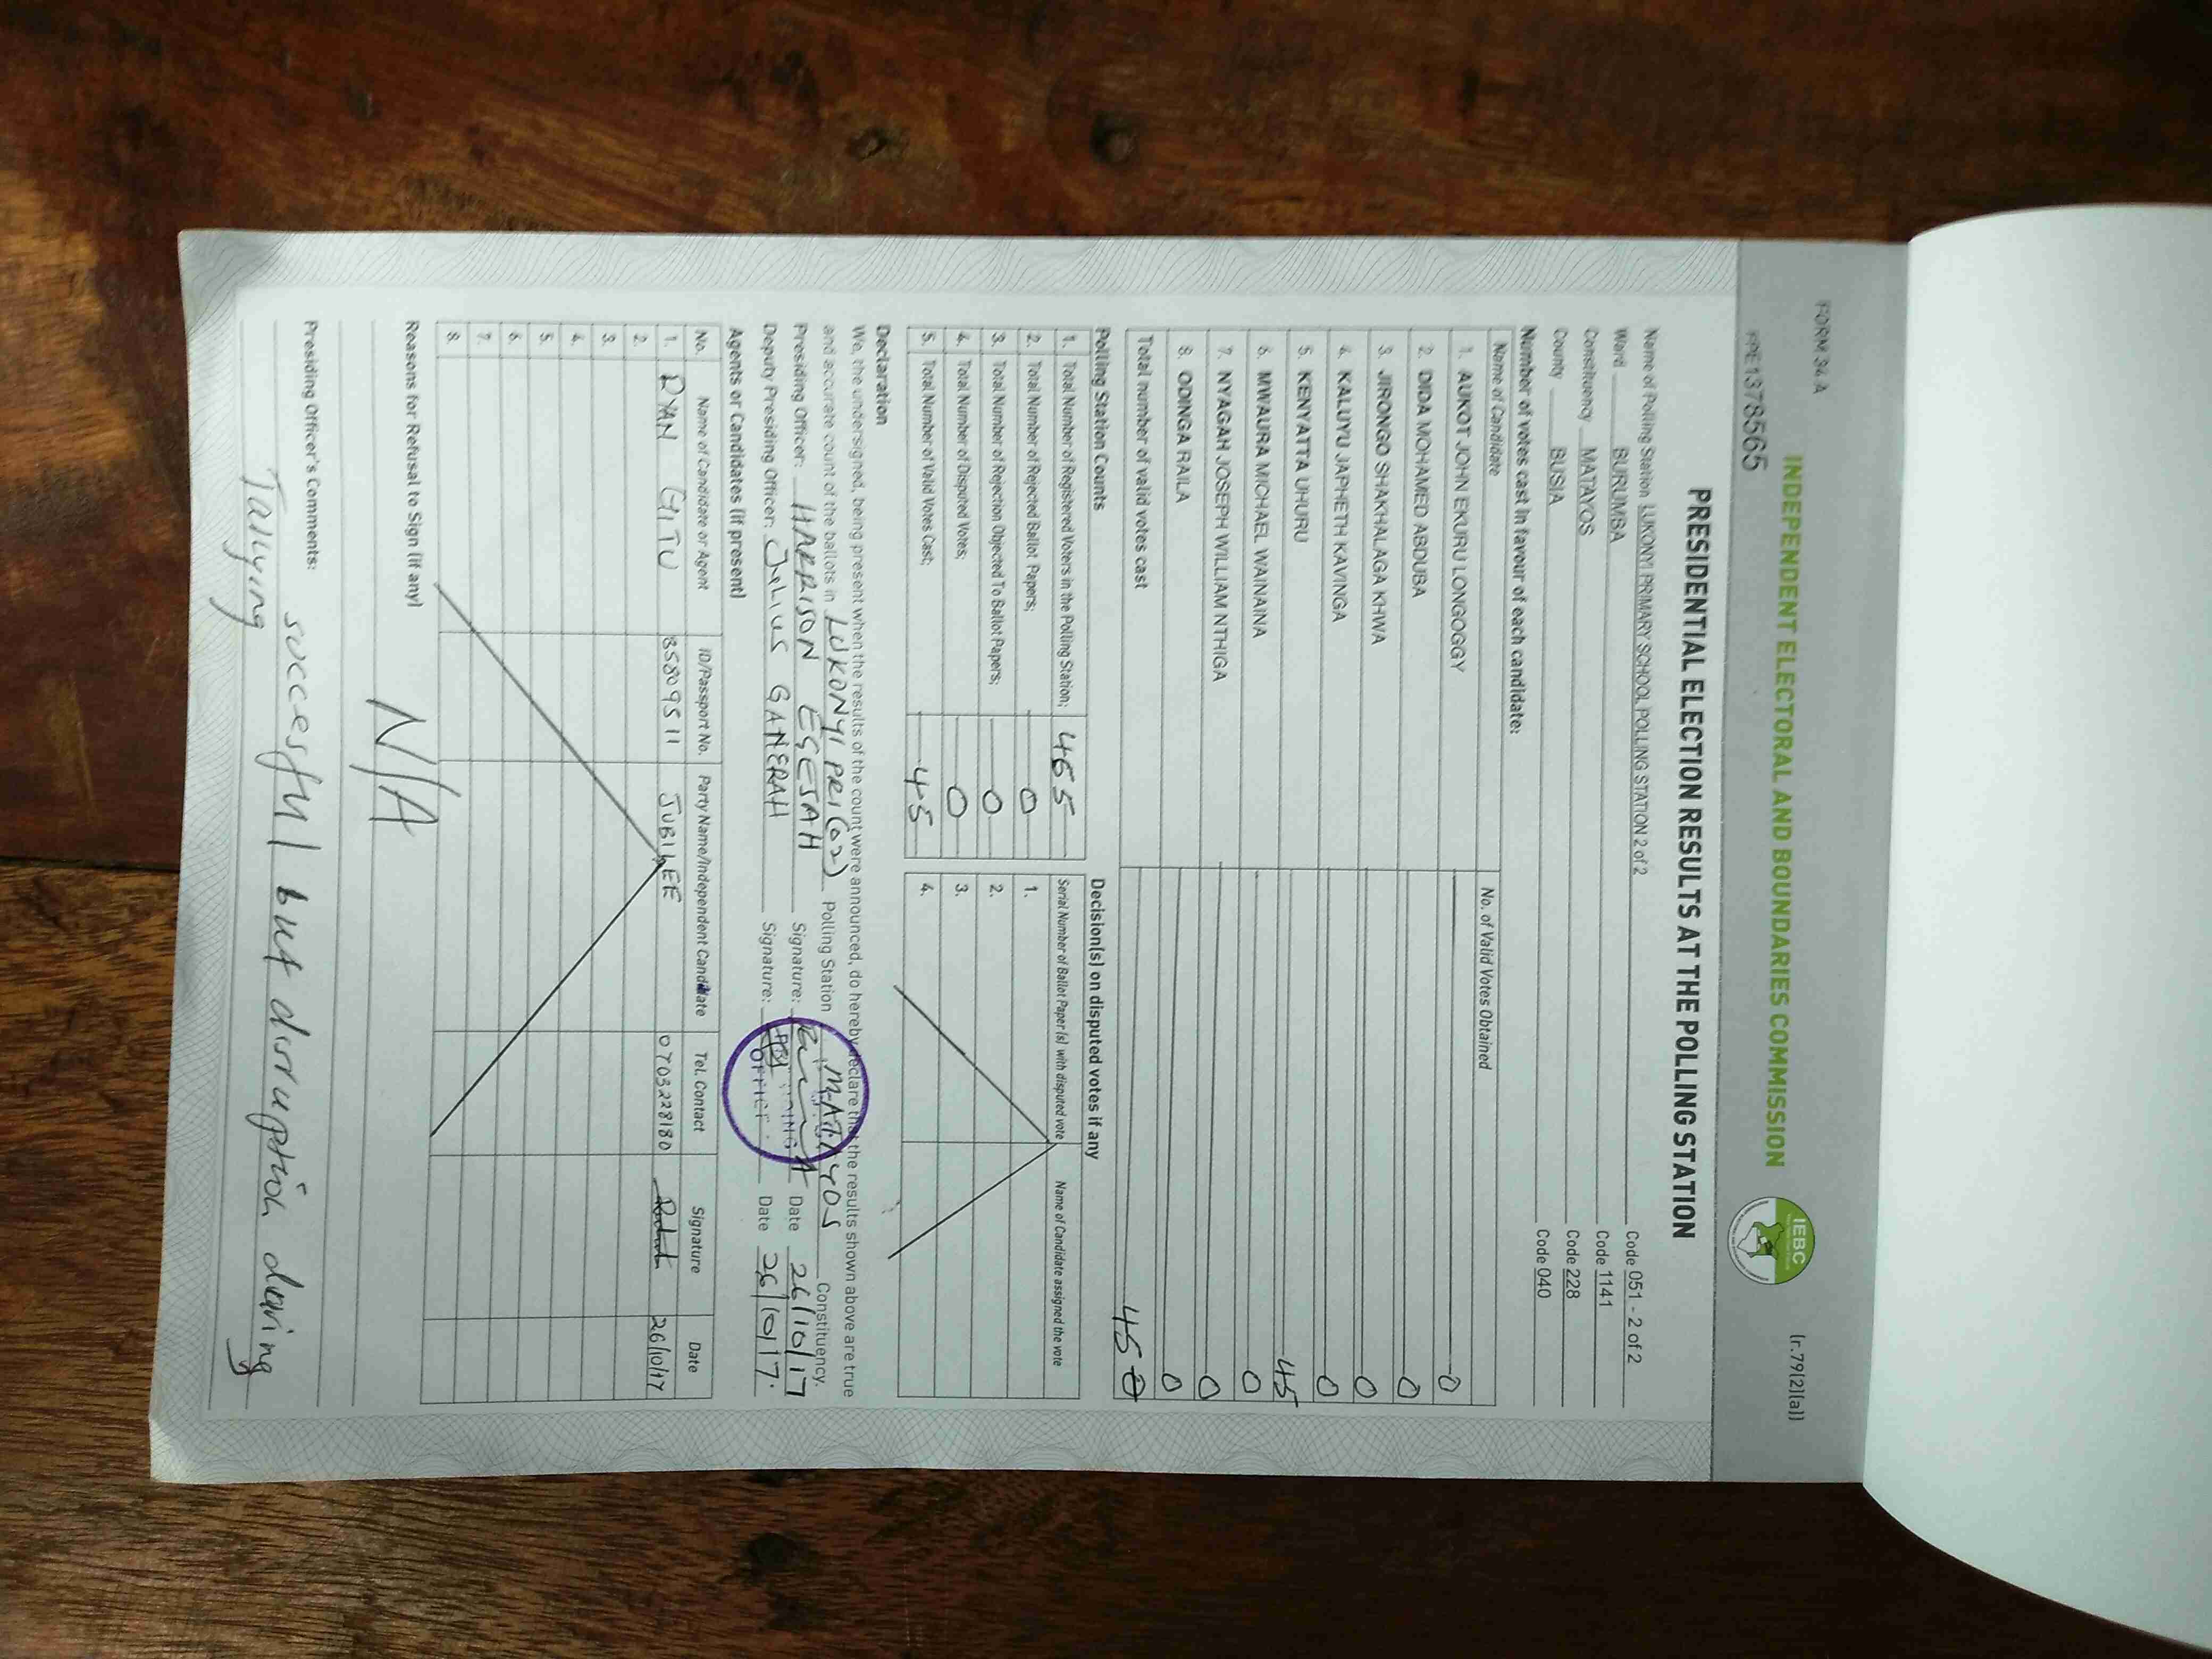 FORM 34 A
(r.79(2)(a))
INDEPENDENT ELECTORAL AND BOUNDARIES COMMISSION
IEBC
PRE1378565
PRESIDENTIAL ELECTION RESULTS AT THE POLLING STATION
Name of Polling Station LUKONYI PRIMARY SCHOOL POLLING STATION 2 of 2 Code 051 - 2 of 2
Ward BURUMBA Code 1141
Constituency MATAYOS Code 228
County BUSIA Code 040
Number of votes cast in favour of each candidate:
Name of Candidate No. of Valid Votes Obtained
1. AUKOT JOHN EKURU LONGOGGY 0
2. DIDA MOHAMED ABDUBA 0
3. JIRONGO SHAKHALAGA KHWA 0
4. KALUYU JAPHETH KAVINGA 0
5. KENYATTA UHURU 45
6. MWAURA MICHAEL WAINAINA 0
7. NYAGAH JOSEPH WILLIAM NTHIGA 0
8. ODINGA RAILA 0
Total number of valid votes cast 45
Polling Station Counts
1. Total Number of Registered Voters in the Polling Station; 465
2. Total Number of Rejected Ballot Papers; 0
3. Total Number of Rejection Objected To Ballot Papers; 0
4. Total Number of Disputed Votes; 0
5. Total Number of Valid Votes Cast; 45
Decision(s) on disputed votes if any
Serial Number of Ballot Paper(s) with disputed vote Name of Candidate assigned the vote
1.
2.
3.
4.
Declaration
We, the undersigned, being present when the results of the count were announced, do hereby declare that the results shown above are true
and accurate count of the ballots in LUKONYI PRI (02) Polling Station MATAYOS Constituency.
Presiding Officer: HARRISON EGESAH Signature: Date 26/10/17
Deputy Presiding Officer: Julius GANERAH Signature: Date 26/10/17.
OFFICER
Agents or Candidates (if present)
No. Name of Candidate or Agent ID/Passport No. Party Name/Independent Candidate Tel. Contact Signature Date
1. RYAN GITU 35809511 JUBILEE 0703228180 26/10/17
2.
3.
4.
5.
6.
7.
8.
Reasons for Refusal to Sign (if any)
N/A
Presiding Officer's Comments:
successful but disruption during
Tallying